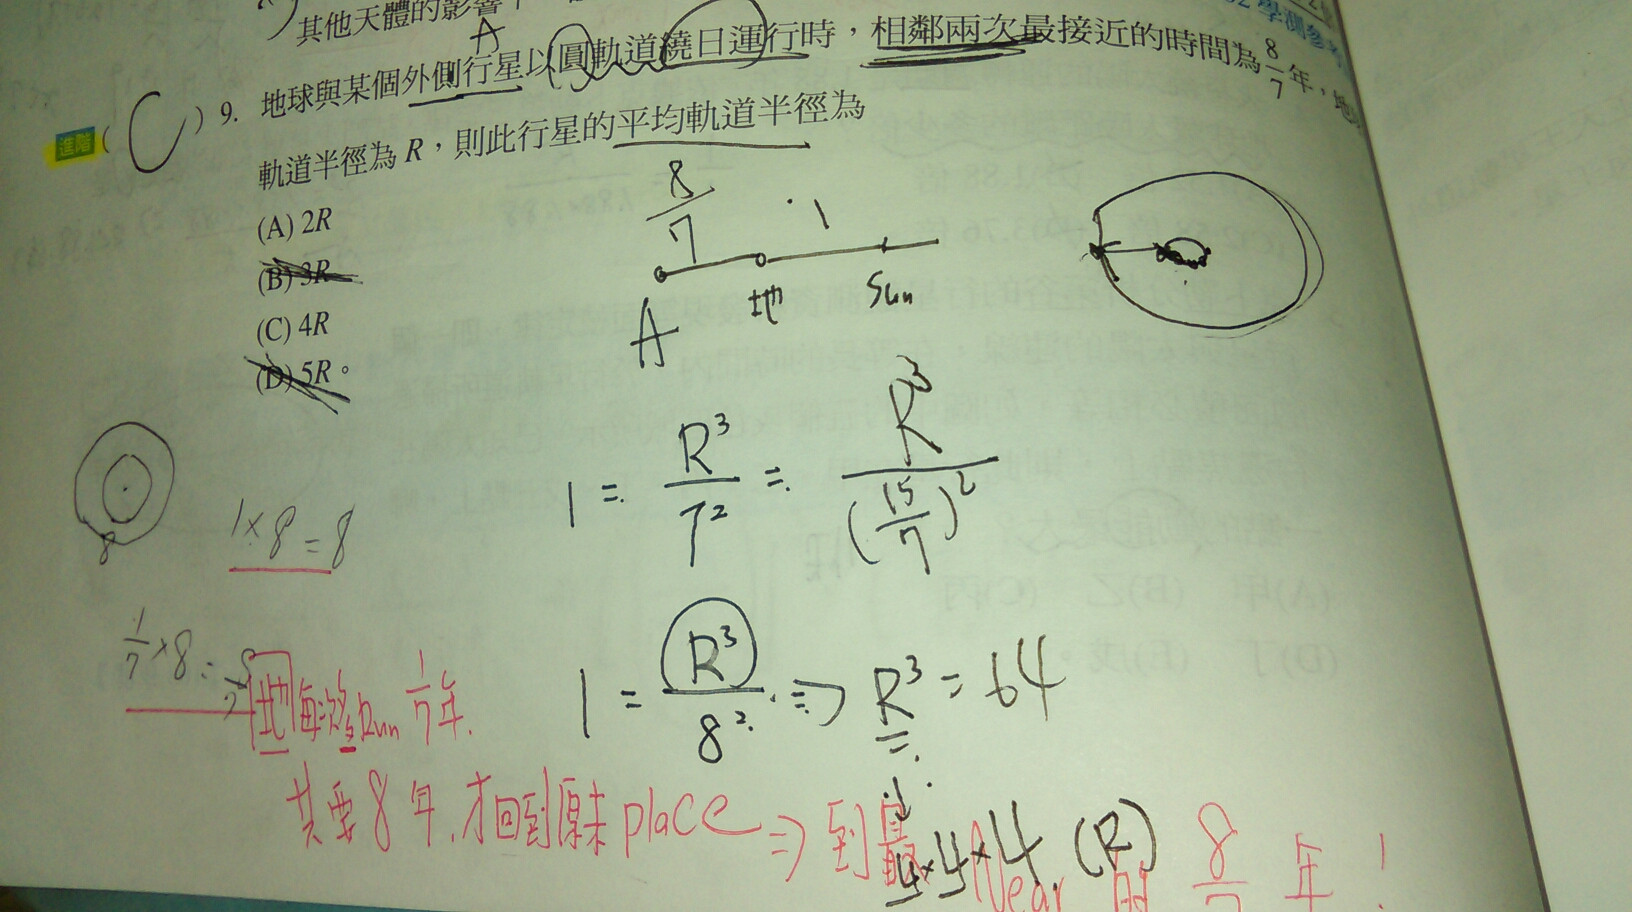 其他天體的影響
A
進階 ( C ) 9. 地球與某個外側行星以圓軌道繞日運行時，相鄰兩次最接近的時間為 8/7 年，地球
軌道半徑為 R，則此行星的平均軌道半徑為
(A) 2R
(B) 3R
(C) 4R
(D) 5R。
8/7 1
A 地 Sun
1 = R³/T² = R³/(15/7)²
8
1×8=8
1 = R³/8² ⇒ R³ = 64
1/7×8=8/7
地每次 Run 1/7年.
4×4×4 (R)
共要8年,才回到原來place ⇒ 到最Near 的 8/7 年!
學測參考
(A)甲 (B)乙 (C)丙
(D)丁 (E)戊。